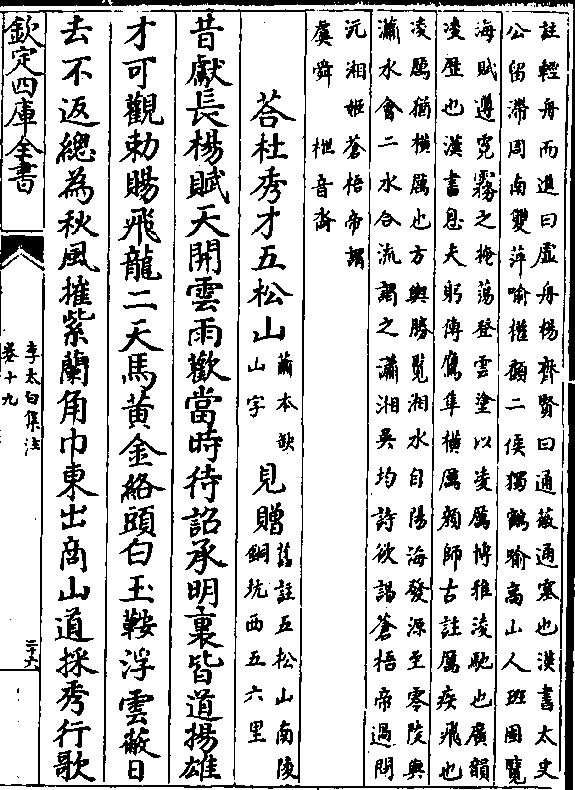 註輕舟而進曰虛舟楊齊賢曰通蔽通塞也漢書太史
公留滯周南雙萍喻權顧二侯獨鶴喻高山人班固覽
海賦遵霓霧之掩蕩登雲塗以凌厲博雅淩馳也廣韻
凌歷也漢書息夫躬傳鷹隼橫厲顏師古註厲疾飛也
凌厲猶橫厲也方輿勝覽湘水自陽海發源至零陵與
瀟水會二水合流謂之瀟湘吳均詩欲謁蒼梧帝過問
沅湘姬蒼梧帝謂
虞舜 枻音裔
荅杜秀才五松山 蕭本缺山字 見贈 舊註五松山南陵銅坑西五六里
昔獻長楊賦天開雲雨歡當時待詔承明裏皆道揚雄
才可觀勅賜飛龍二天馬黃金絡頭白玉鞍浮雲蔽日
去不返總為秋風摧紫蘭角巾東出商山道採秀行歌
欽定四庫全書
李太白集注
卷十九
二十六